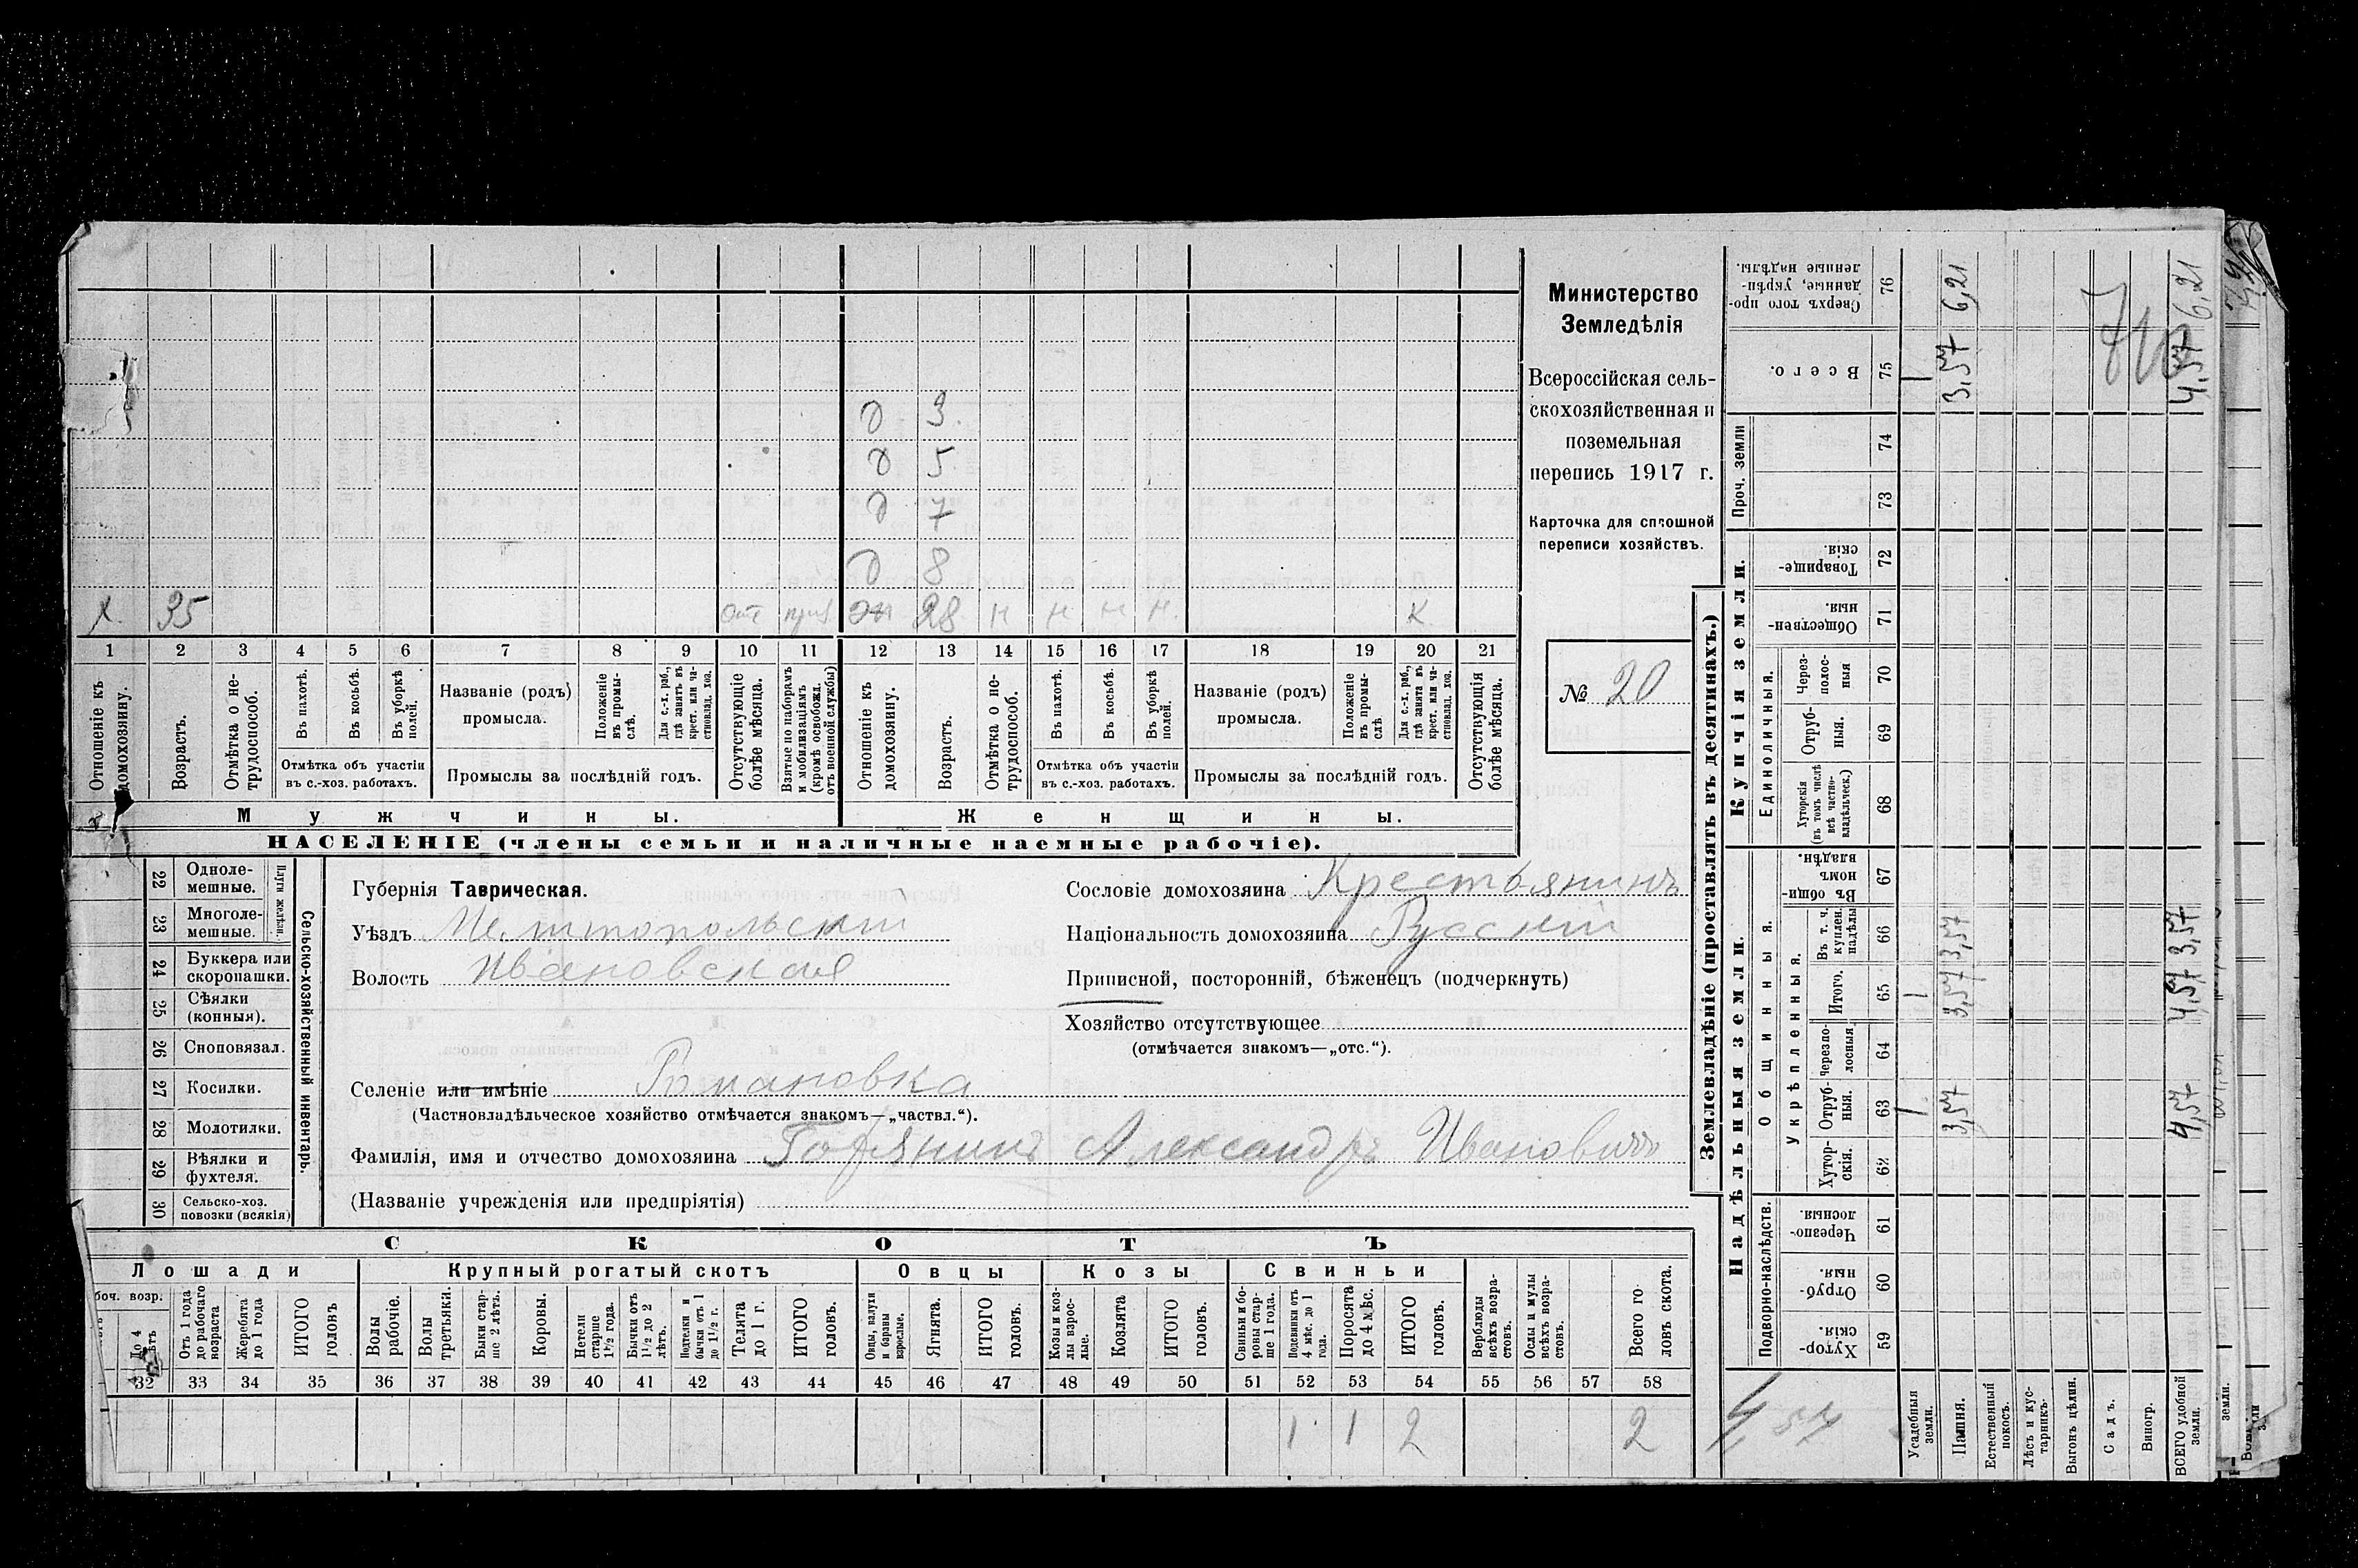 Министерство
Земледѣлія
Всероссійская сель-
скохозяйственная и
поземельная
перепись 1917 г.
Карточка для сплошной
переписи хозяйствъ.
№ 20
д 3.
д 5
д 7
д 8
х 35 отс жн 28 н н н н к
1 2 3 4 5 6 7 8 9 10 11 12 13 14 15 16 17 18 19 20 21
Отношеніе къ домохозяину.
Возрастъ.
Отмѣтка о не-трудоспособ.
Въ пахотѣ.
Въ косьбѣ.
Въ уборкѣ полей.
Отмѣтка объ участіи
въ с.-хоз. работахъ.
Названіе (родъ)
промысла.
Положеніе въ промы-слѣ.
Для с.-х. раб., гдѣ занятъ въ крест. или ча-стновлад. хоз.
Промыслы за послѣдній годъ.
Отсутствующіе болѣе мѣсяца.
Взятые по наборамъ и мобилизаціямъ (кромѣ освобожд. отъ военной службы)
Отношеніе къ домохозяину.
Возрастъ.
Отмѣтка о не-трудоспособ.
Въ пахотѣ.
Въ косьбѣ.
Въ уборкѣ полей.
Отмѣтка объ участіи
въ с.-хоз. работахъ.
Названіе (родъ)
промысла.
Положеніе въ промы-слѣ
Для с.-х. раб., гдѣ занята въ крест. или ча-стновлад. хоз.
Промыслы за послѣдній годъ.
Отсутствующія болѣе мѣсяца.
Мужчины. Женщины.
НАСЕЛЕНІЕ (члены семьи и наличные наемные рабочіе).
22 Одноле-мешные.
23 Многоле-мешные.
Плуги желѣзн.
24 Буккера или скоропашки.
25 Сѣялки (конныя).
26 Сноповязал.
27 Косилки.
28 Молотилки.
29 Вѣялки и фухтеля.
30 Сельско-хоз. повозки (всякія)
Сельско-хозяйственный инвентарь.
Губернія Таврическая.
Уѣздъ Мелитопольскій
Волость Ивановская
Селеніе или имѣніе Романовка
(Частновладѣльческое хозяйство отмѣчается знакомъ—„частвл.“).
Фамилія, имя и отчество домохозяина Александръ Ивановичъ
(Названіе учрежденія или предпріятія)
Сословіе домохозяина Крестьянинъ
Національность домохозяина Русскій
Приписной, посторонній, бѣженецъ (подчеркнуть)
Хозяйство отсутствующее
(отмѣчается знакомъ—„отс.“).
СКОТЪ
Лошади Крупный рогатый скотъ Овцы Козы Свиньи
боч. возр.
До 4 лѣтъ
Отъ 1 года до рабочаго возраста
Жеребята до 1 года
ИТОГО головъ
Волы рабочіе.
Волы третьяки.
Быки стар-ше 2 лѣтъ.
Коровы.
Нетели старше 1½ года.
Бычки отъ 1½ до 2 лѣтъ.
Подтелки и бычки отъ 1 до 1½ г.
Телята до 1 г.
ИТОГО головъ.
Овцы, валухи и бараны взрослые.
Ягнята.
ИТОГО головъ.
Козы и коз-лы взрос-лые.
Козлята
ИТОГО головъ.
Свиньи и бо-ровы стар-ше 1 года.
Подсвинки отъ 4 мѣс. до 1 года.
Поросята до 4 мѣс.
ИТОГО головъ.
Верблюды всѣхъ возра-стовъ.
Ослы и мулы всѣхъ возра-стовъ.
Всего го-ловъ скота.
32 33 34 35 36 37 38 39 40 41 42 43 44 45 46 47 48 49 50 51 52 53 54 55 56 57 58
1 1 2 2
4,57
Землевладѣніе (проставлять въ десятинахъ.)
Надѣльныя земли. Купчія земли. Проч. земли
Подворно-наслѣдств.
Общинныя.
Укрѣпленныя.
Единоличныя.
Хутор-скія. 59
Отруб-ныя. 60
Черезпо-лосныя 61
Хутор-скія. 62
Отруб-ныя. 63
Черезпо-лосныя. 64
Итого. 65
Въ т. ч. куплен. надѣлы 66
Въ общи-номъ владѣн. 67
Хуторскія (въ томъ числѣ всѣ частно-владѣльческ.) 68
Отруб-ныя. 69
Через-полос-ныя 70
Обществен-ныя 71
Товарище-скія. 72
73
74
Всего. 75
Сверхъ того про-данные, укрѣп-ленные надѣлы. 76
Усадебныя земли. 1 1 1
Пашня. 3,57 3,57 3,57 3,57 6,21
Естественный покосъ.
Лѣсъ и кус-тарникъ.
Выгонъ цѣлин.
Садъ.
Виногр.
ВСЕГО удобной земли. 4,57 4,57 3,57 4,57 6,21
земли.